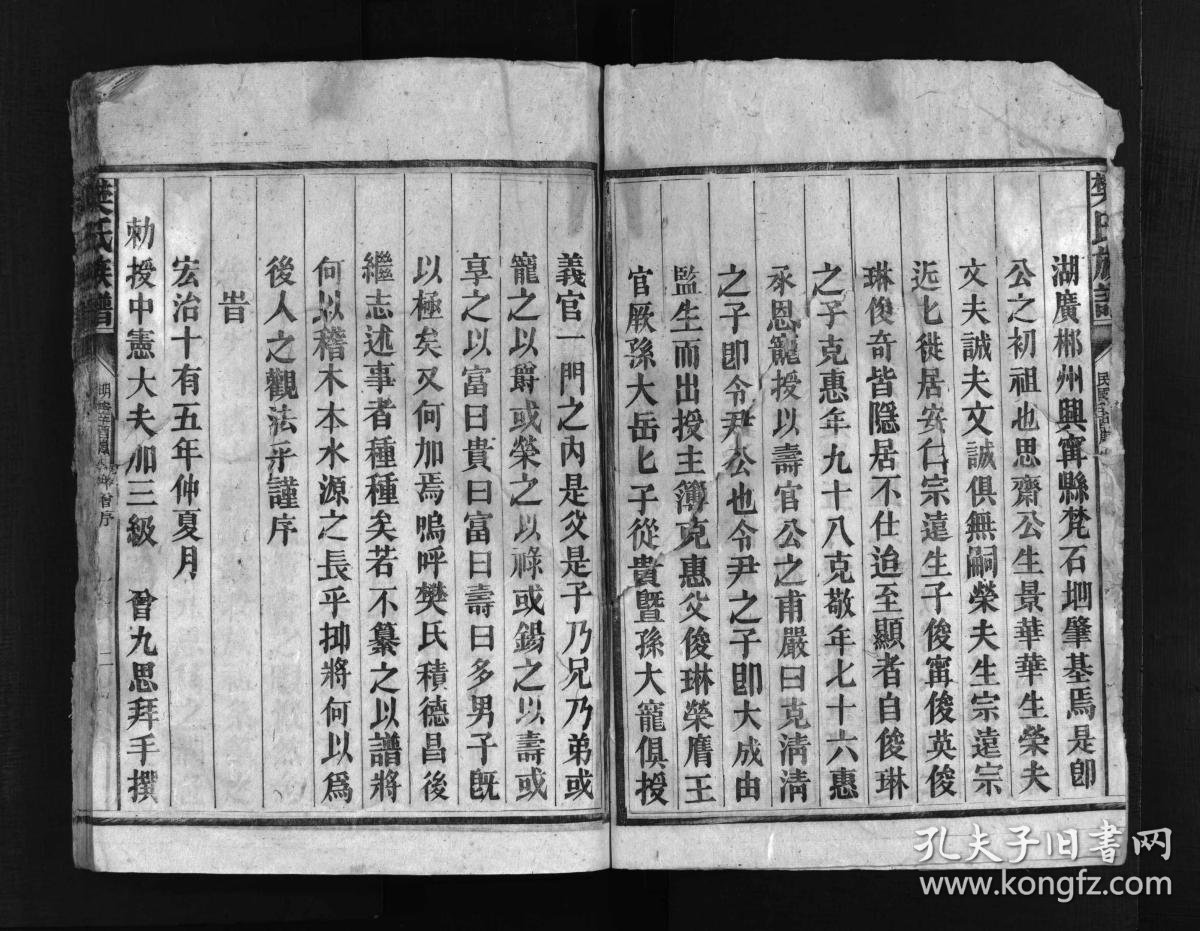 樊氏族譜
湖廣郴州興寧縣梵石垇肇基焉是卽
公之初祖也思齋公生景華華生榮夫
文夫誠夫文誠俱無嗣榮夫生宗遠宗
近匕徙居安仁宗遠生子俊甯俊英俊
琳俊奇皆隱居不仕迨至顯者自俊琳
之子克惠年九十八克敬年七十六惠
承恩寵授以壽官公之甫嚴曰克淸淸
之子卽令尹公也令尹之子卽大成由
監生而出授主簿克惠父俊琳榮膺王
官厥孫大岳匕子從貴暨孫大寵俱授
義官一門之內是父是子乃兄乃弟或
寵之以爵或榮之以祿或錫之以壽或
享之以富曰貴曰富曰壽曰多男子旣
以極矣又何加焉嗚呼樊氏積德昌後
繼志述事者種種矣若不纂之以譜將
何以稽木本水源之長乎抑將何以爲
後人之觀法乎謹序
旹
宏治十有五年仲夏月
勅授中憲大夫加三級 曾九思拜手撰
樊氏族譜
曾序
二
孔夫子旧書网
www.kongfz.com